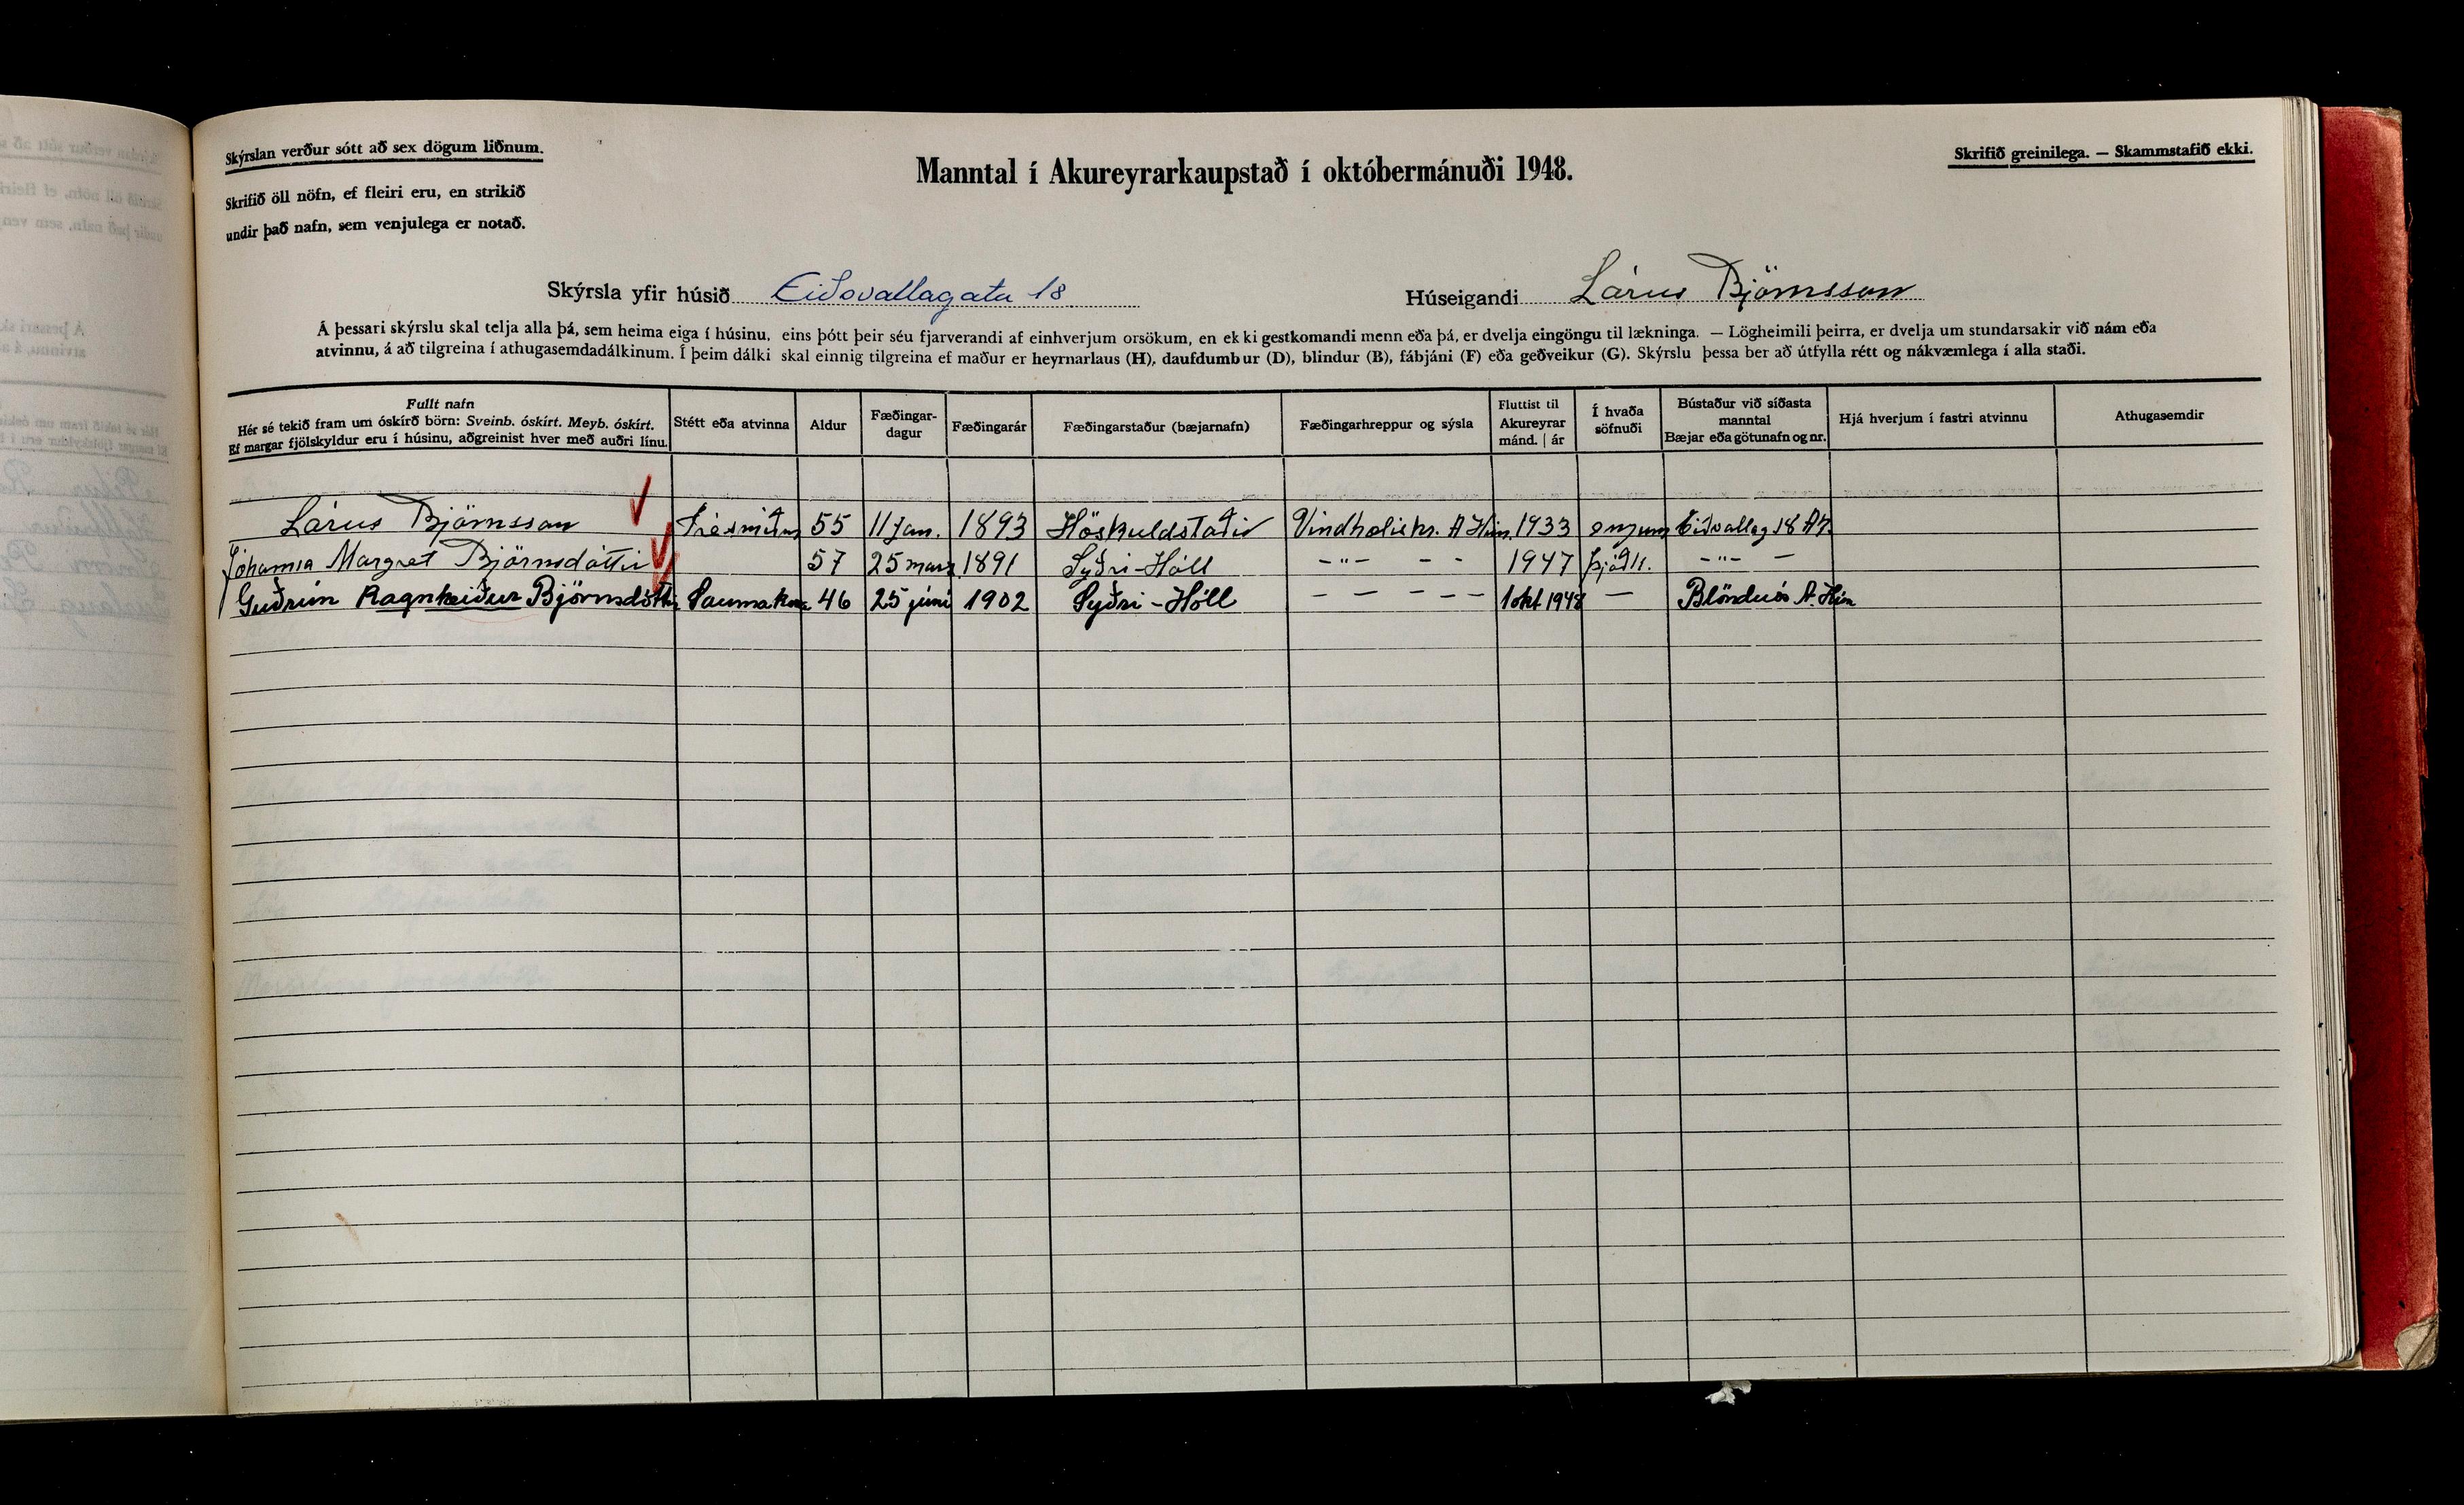 Skýrslan verður sótt að sex dögum liðnum.
Skrifið öll nöfn, ef fleiri eru, en strikið
undir það nafn, sem venjulega er notað.
Manntal í Akureyrarkaupstað í októbermánuði 1948.
Skrifið greinilega. — Skammstafið ekki.
Skýrsla yfir húsið Eiðsvallagata 18
Húseigandi Lárus Björnsson
Á þessari skýrslu skal telja alla þá, sem heima eiga í húsinu, eins þótt þeir séu fjarverandi af einhverjum orsökum, en ekki gestkomandi menn eða þá, er dvelja eingöngu til lækninga. — Lögheimili þeirra, er dvelja um stundarsakir við nám eða
atvinnu, á að tilgreina í athugasemdadálkinum. Í þeim dálki skal einnig tilgreina ef maður er heyrnarlaus (H), daufdumbur (D), blindur (B), fábjáni (F) eða geðveikur (G). Skýrslu þessa ber að útfylla rétt og nákvæmlega í alla staði.
Fullt nafn
Hér sé tekið fram um óskírð börn: Sveinb. óskírt. Meyb. óskírt.
Ef margar fjölskyldur eru í húsinu, aðgreinist hver með auðri línu.
Stétt eða atvinna
Aldur
Fæðingar-
dagur
Fæðingarár
Fæðingarstaður (bæjarnafn)
Fæðingarhreppur og sýsla
Fluttist til
Akureyrar
mánd. | ár
Í hvaða
söfnuði
Bústaður við síðasta
manntal
Bæjar eða götunafn og nr.
Hjá hverjum í fastri atvinnu
Athugasemdir
Lárus Björnsson Trésmiður 55 11 Jan. 1893 Höskuldstaðir Vindhælishr. A Hún. 1933 engum Eiðsvallag 18 Ak.
Jóhanna Margret Björnsdóttir 57 25 mars 1891 Syðri-Hóll -"- - - 1947 Þjóðk. -"- -
Guðrún Ragnheiður Björnsdóttir Saumakona 46 25 júní 1902 Syðri-Hóll - - - - - 1 okt 1948 — Blönduós A. Hún